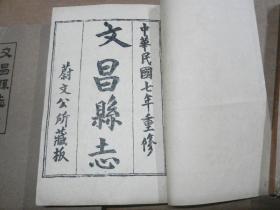 中華民國七年重修
文昌縣志
蔚文公所藏板
文昌縣志